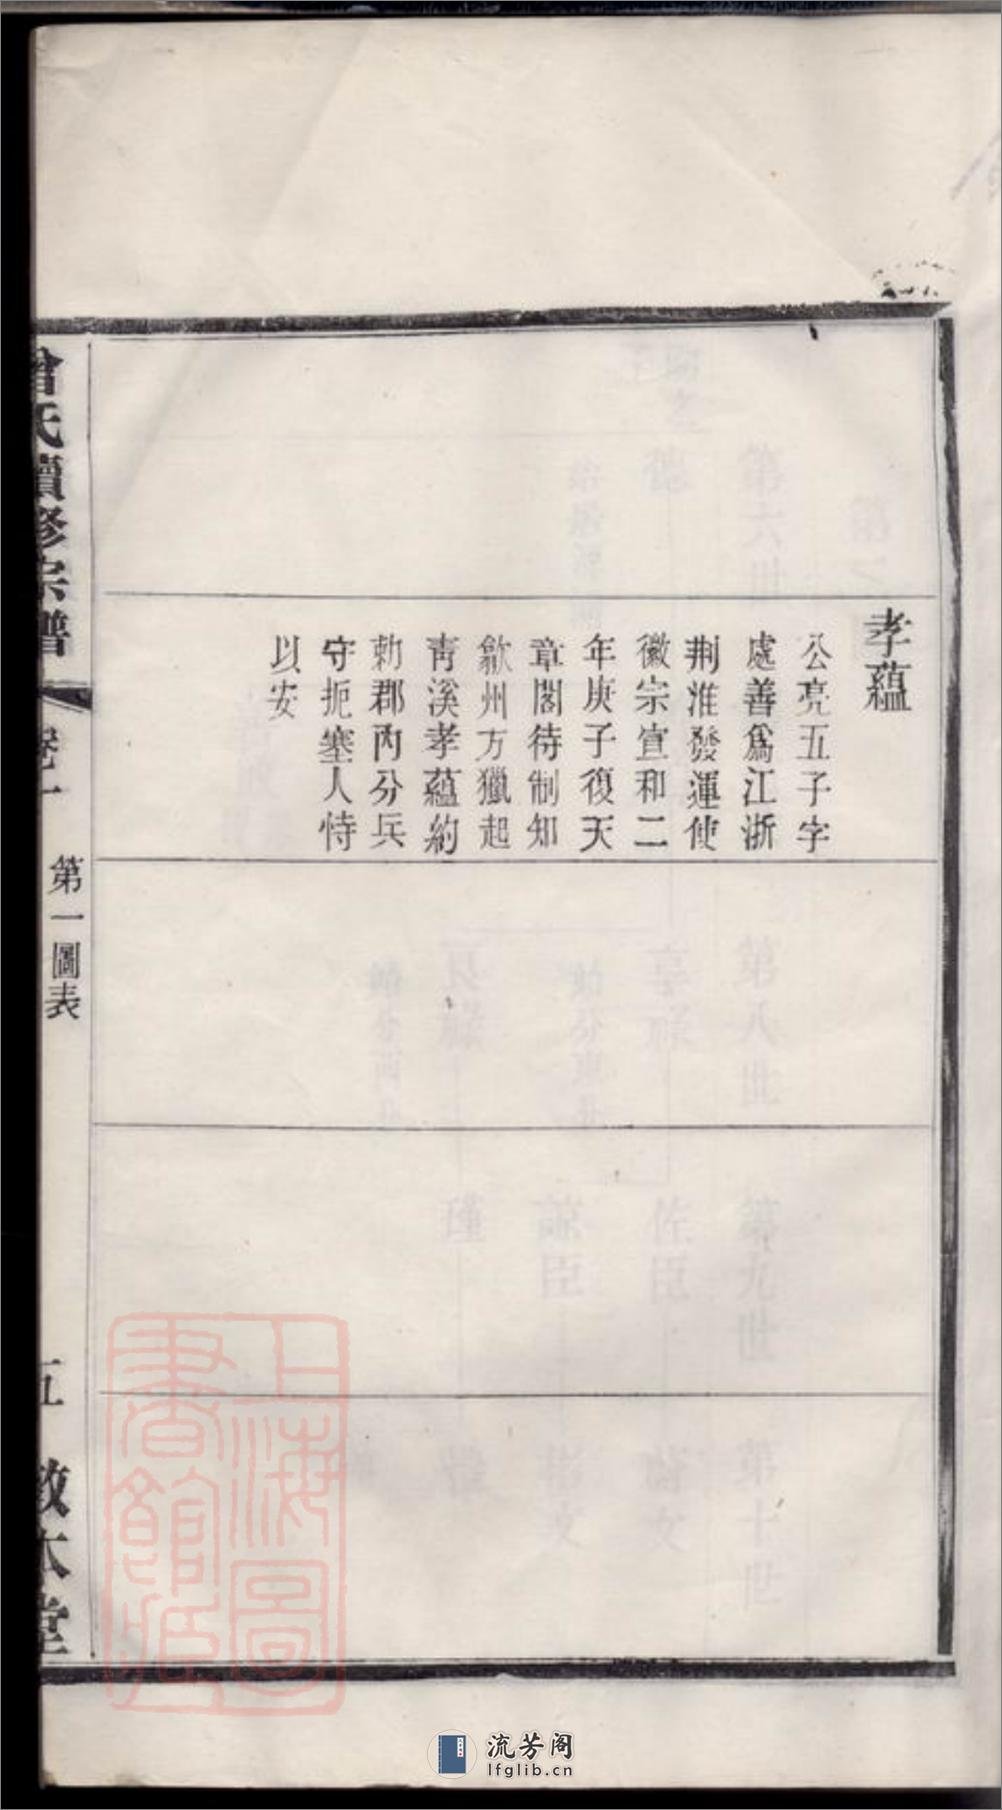 孝蘊
公亮五子字
處善爲江浙
荆淮發運使
徽宗宣和二
年庚子復天
章閣待制知
歙州方獵起
靑溪孝蘊約
勅郡內分兵
守扼塞人恃
以安
曾氏續修宗譜
卷一
第一圖表
五
敦本堂
上海圖
書館藏
流芳阁
lfglib.cn